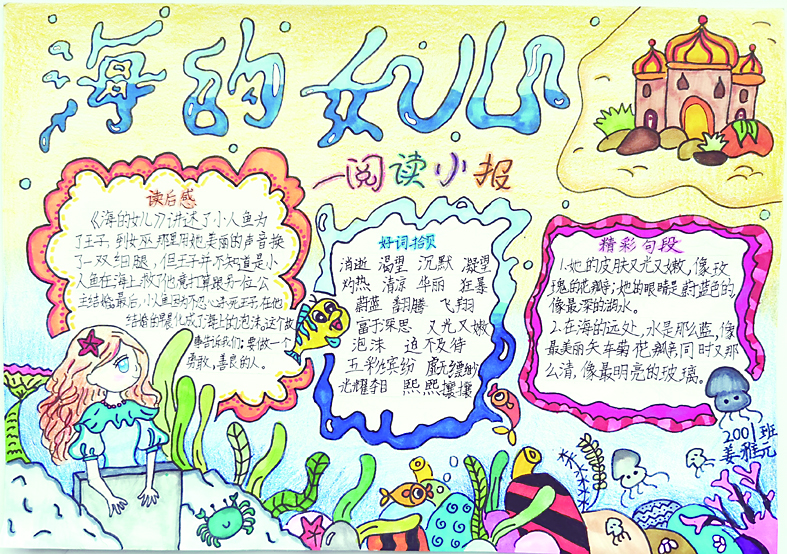 海的女儿
一阅读小报
读后感
《海的女儿》讲述了小人鱼为
了王子,到女巫那里用她美丽的声音换
了一双细腿,但王子并不知道是小
人鱼在海上救了他竟打算跟另一位公
主结婚。最后,小人鱼因为不忍心杀死王子,在他
结婚的早晨化成了海上的泡沫。这个故
事告诉我们:要做一个
勇敢,善良的人。
好词拾贝
消逝 渴望 沉默 凝望
灼热 清凉 华丽 狂暴
蔚蓝 翻腾 飞翔
富于深思 又光又嫩
泡沫 迫不及待
五彩缤纷
光耀夺目 熙熙攘攘
精彩句段
1.她的皮肤又光又嫩,像玫
瑰的花瓣;她的眼睛是蔚蓝色的,
像最深的湖水。
2.在海的远处,水是那么蓝,像
最美丽矢车菊花瓣,同时又那
么清,像最明亮的玻璃。
2001班
姜雅元